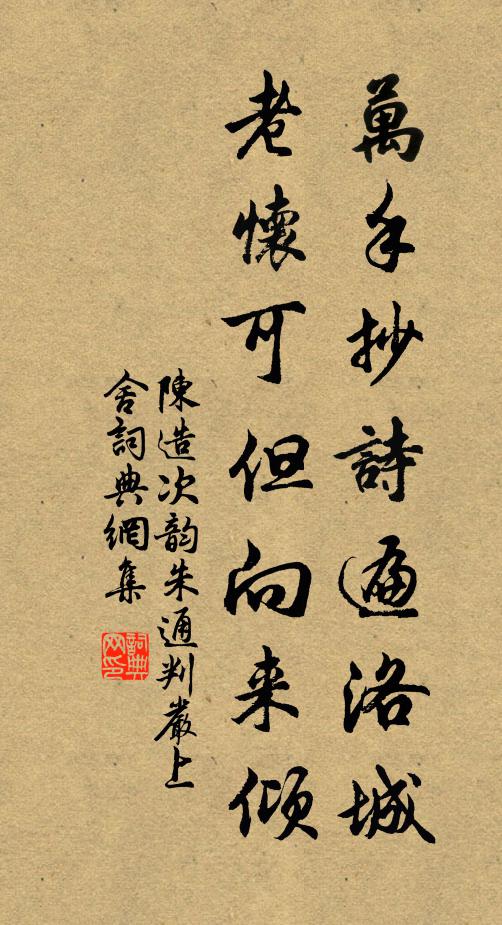 萬手抄詩遍洛城
老懷可但向来傾
陳造次韵朱通判嚴上
舍詞典網集
詞典
网印